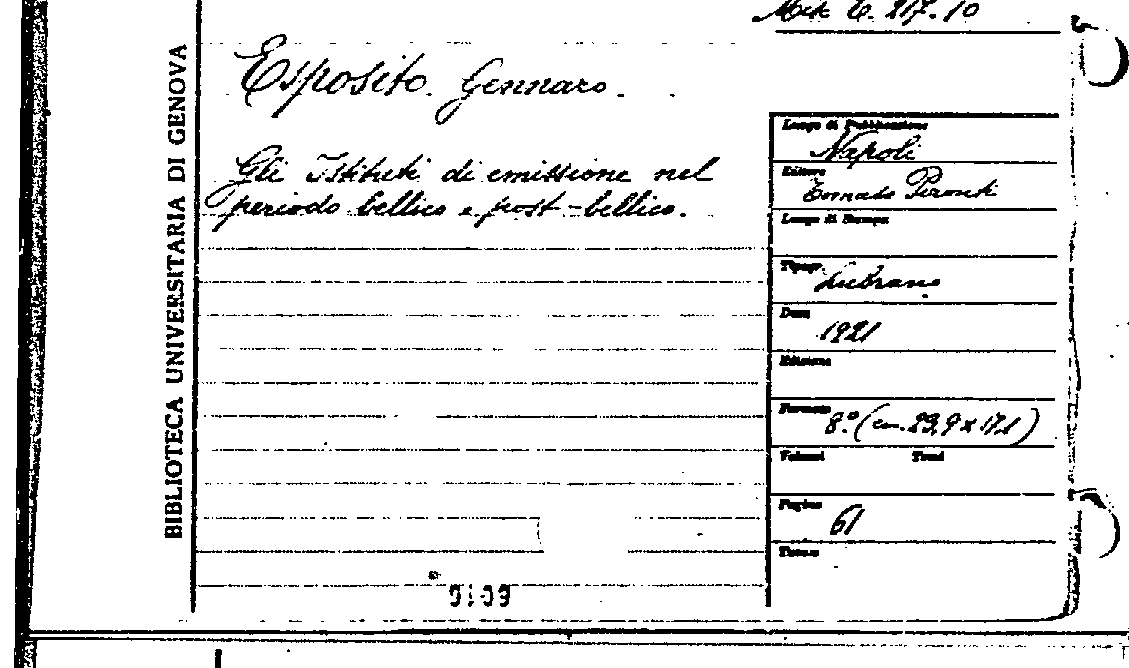 BIBLIOTECA UNIVERSITARIA DI GENOVA
E. 217.10
Esposito Gennaro.
Gli Istituti di emissione nel
periodo bellico e post-bellico.
Luogo di Pubblicazione
Napoli
Editore
Tornado Pironti
Luogo di Stampa
Tipogr.
Lubrano
Data
1921
Edizione
Formato
8.° (cm. 23,9 x 17,1)
Volumi Tomi
Pagine
61